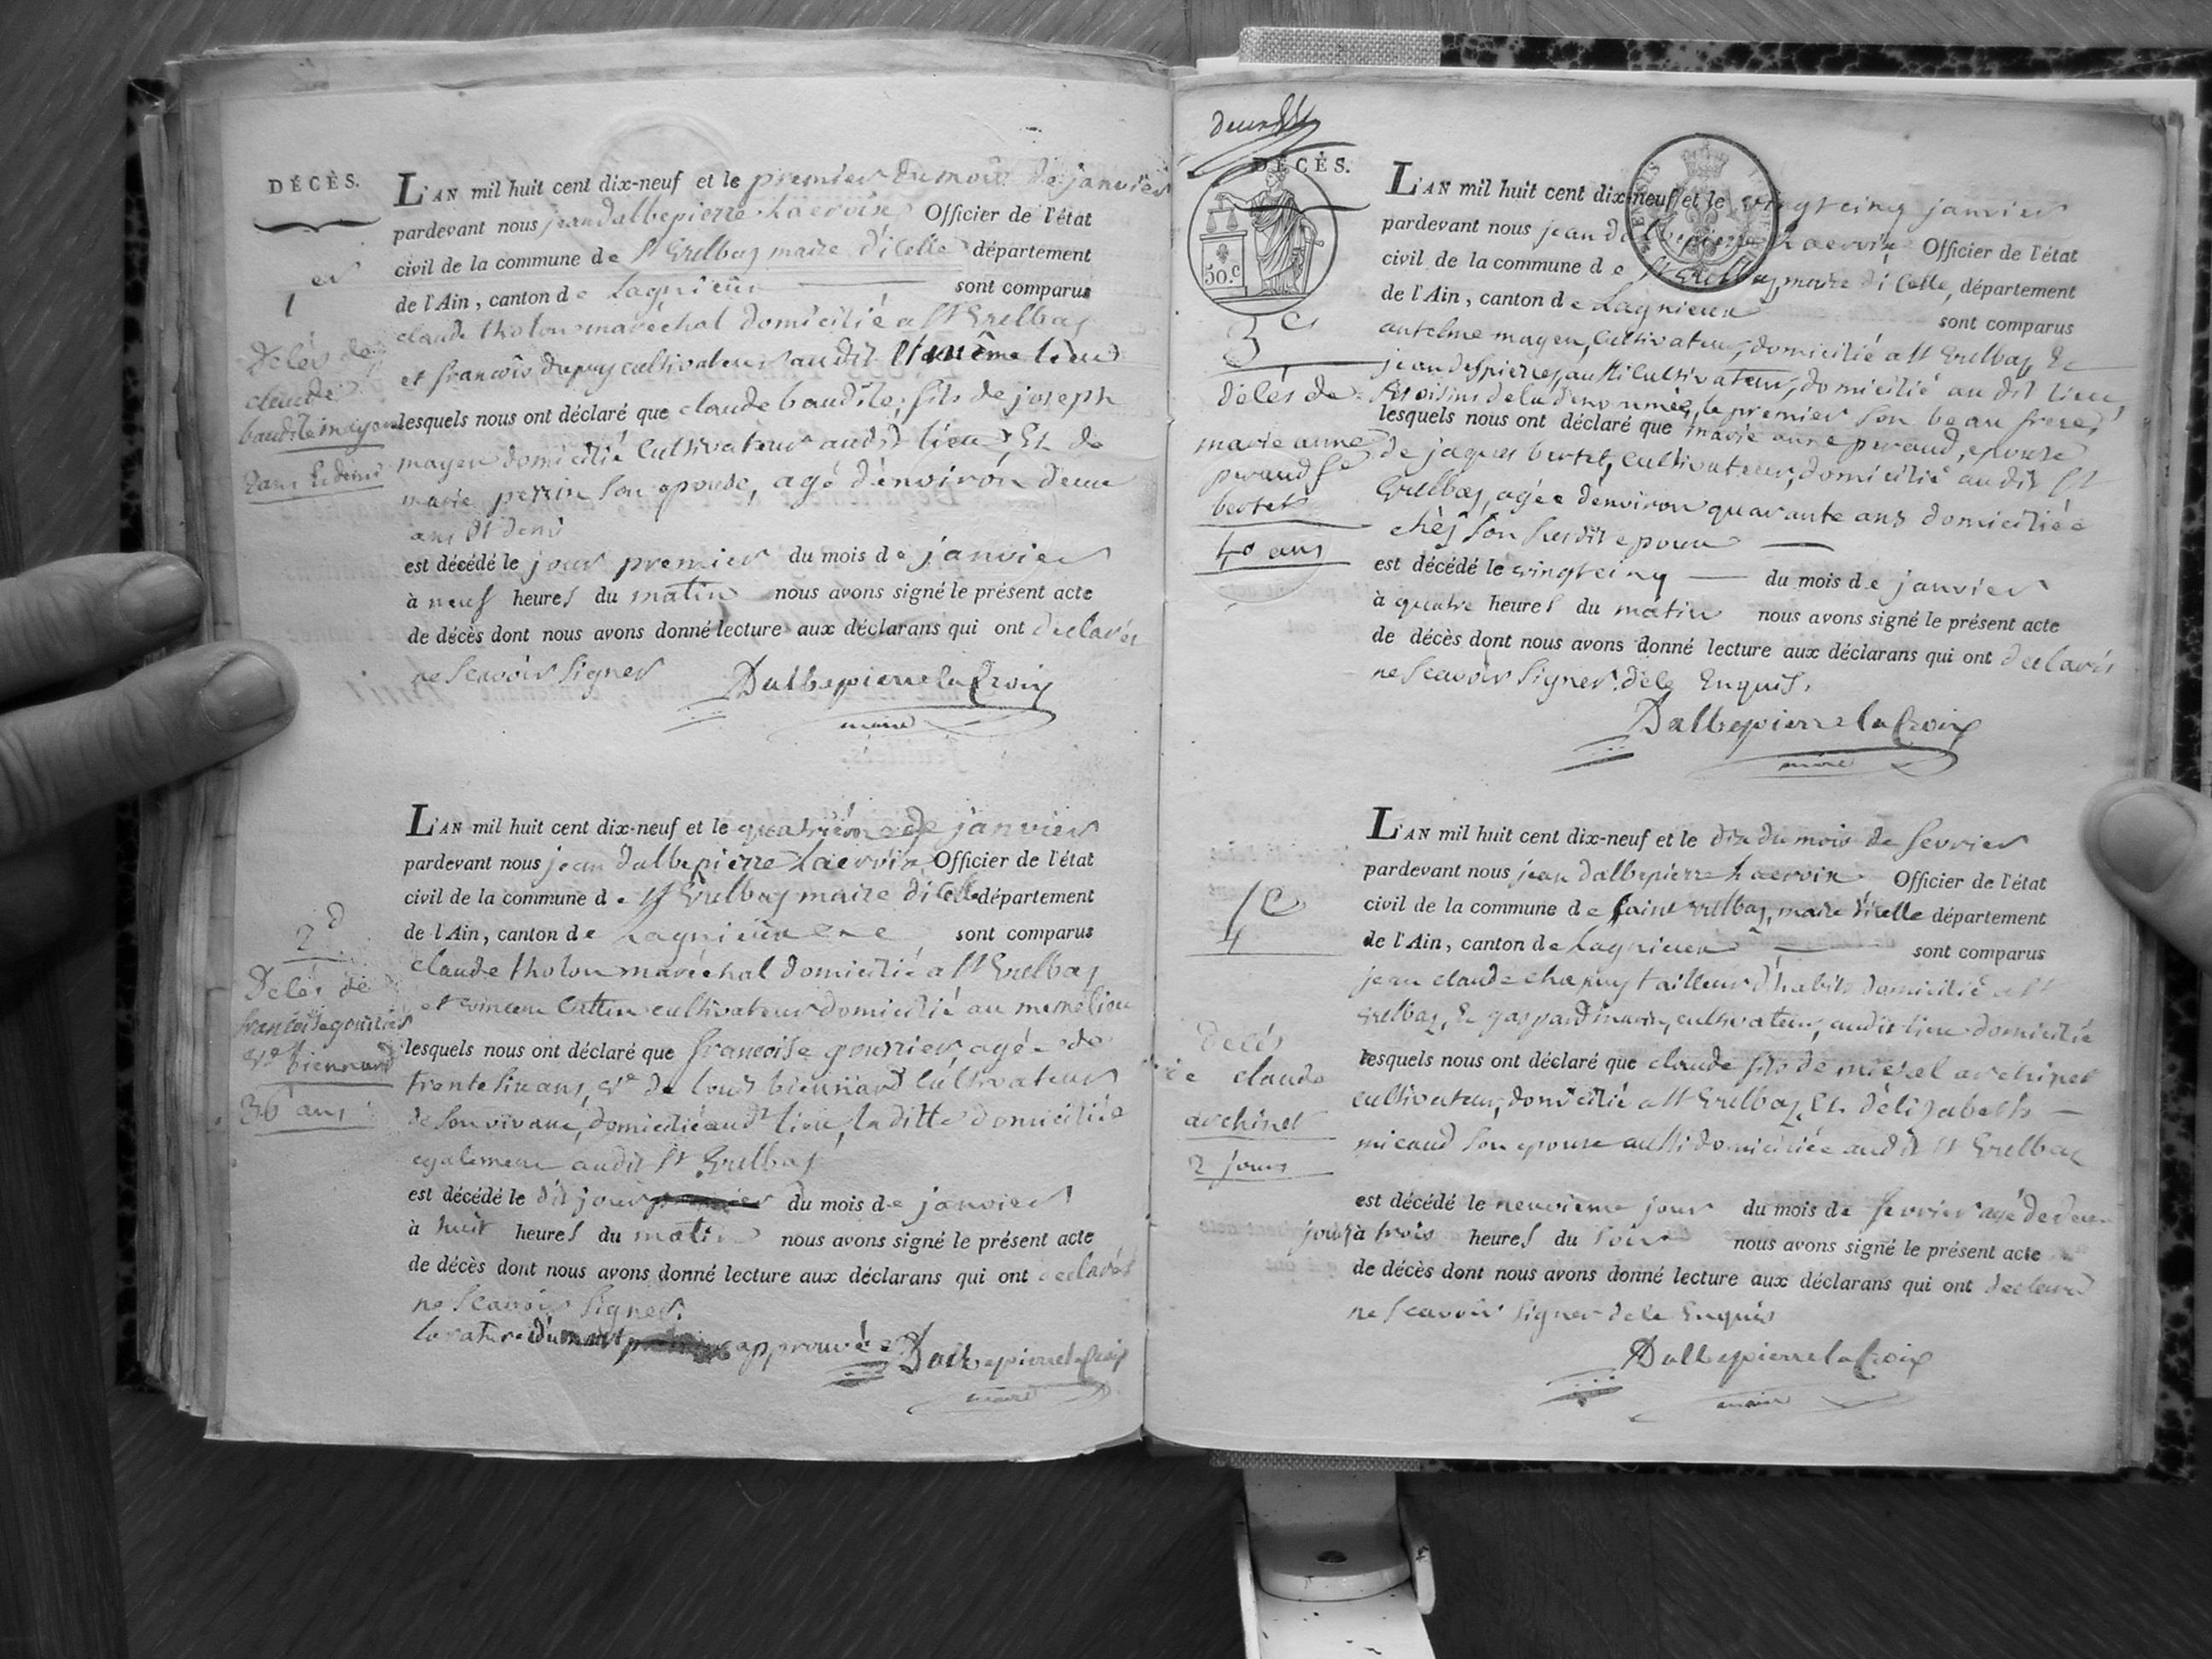 DÉCÈS.
1er
Décès de
claude
baudile mayen
2 ans et demi
L'AN mil huit cent dix-neuf et le premier du mois de janvier
pardevant nous jean dalbepierre Lacroix Officier de l'état
civil de la commune de St Grelbas maire d'icelle département
de l'Ain, canton de Lagnieüx sont comparus
claude tholon maréchal domicilié a St Grelbas
et francois dupuy cultivateur audit même lieu
lesquels nous ont déclaré que claude baudile, fils de joseph
mayen domicilié Cultivateur audit lieu, Et de
marie perrin son epouse, agé d'environ deux
ans Et demi
est décédé le jour premier du mois de janvier
à neuf heures du matin nous avons signé le présent acte
de décès dont nous avons donné lecture aux déclarans qui ont declarés
ne scavoir signer
Dalbepierre la Croix
maire
2d
Décès de
francoise gourrier
ve biennard
36 ans
L'AN mil huit cent dix-neuf et le quatrième de janvier
pardevant nous jean dalbepierre Lacroix Officier de l'état
civil de la commune de St Grelbas maire dicelle département
de l'Ain, canton de Lagnieüx sont comparus
claude tholon maréchal domicilié a St Grelbas
et vincent cultivateur domicilié au meme lieu
lesquels nous ont déclaré que francoise gourrier, agée de
trente six ans, ve de louis biennard cultivateur
de son vivant, domicilié audt lieu, la ditte domiciliée
egalement audit St Grelbas
est décédé le dit jour premier du mois de janvier
à huit heures du matin nous avons signé le présent acte
de décès dont nous avons donné lecture aux déclarans qui ont declarés
ne scavoir signer.
la rature du mot approuvée Dalbepierre la Croix
maire
DÉCÈS.
50.c
3e
décès de
marie anne
peraud fe
bertet
40 ans
L'AN mil huit cent dix-neuf et le vingt cinq janvier
pardevant nous jean dalbepierre Lacroix Officier de l'état
civil de la commune de St Grelbas, maire di Celle, département
de l'Ain, canton de Lagnieux sont comparus
antelme mayen, Cultivateur, domicilié a St Grelbas, Et
jean despierres, aussi Cultivateur, domicilié au dit lieu
voisins de la denommée, le premier son beau frere,
lesquels nous ont déclaré que marie anne peraud, epouse
de jaques bertet, cultivateur, domicilié audit St
Grelbas, agée denviron quarante ans domiciliée
chès son susdit epoux
est décédé le vingt cinq du mois de janvier
à quatre heures du matin nous avons signé le présent acte
de décès dont nous avons donné lecture aux déclarans qui ont declarés
ne scavoir signer. de ce Enquis.
Dalbepierre la Croix
maire
4e
Décès
de claude
archinet
2 jours
L'AN mil huit cent dix-neuf et le dix du mois de fevrier
pardevant nous jean dalbepierre Lacroix Officier de l'état
civil de la commune de saint Grelbas, maire dicelle département
de l'Ain, canton de Lagnieux sont comparus
jean claude chapuy tailleur d'habits domicilié a St
Grelbas, Et gaspard marin, cultivateur, audit lieu domicilié
lesquels nous ont déclaré que claude fils de michel archinet
cultivateur, domicilié a St Grelbas, Et d'elizabeth
micaud son epouse aussi domiciliée audit St Grelbas
est décédé le neuvième jour du mois de fevrier agé de deux
jours à trois heures du soir nous avons signé le présent acte
de décès dont nous avons donné lecture aux déclarans qui ont declaré
ne scavoir signer de ce Enquis
Dalbepierre la Croix
maire